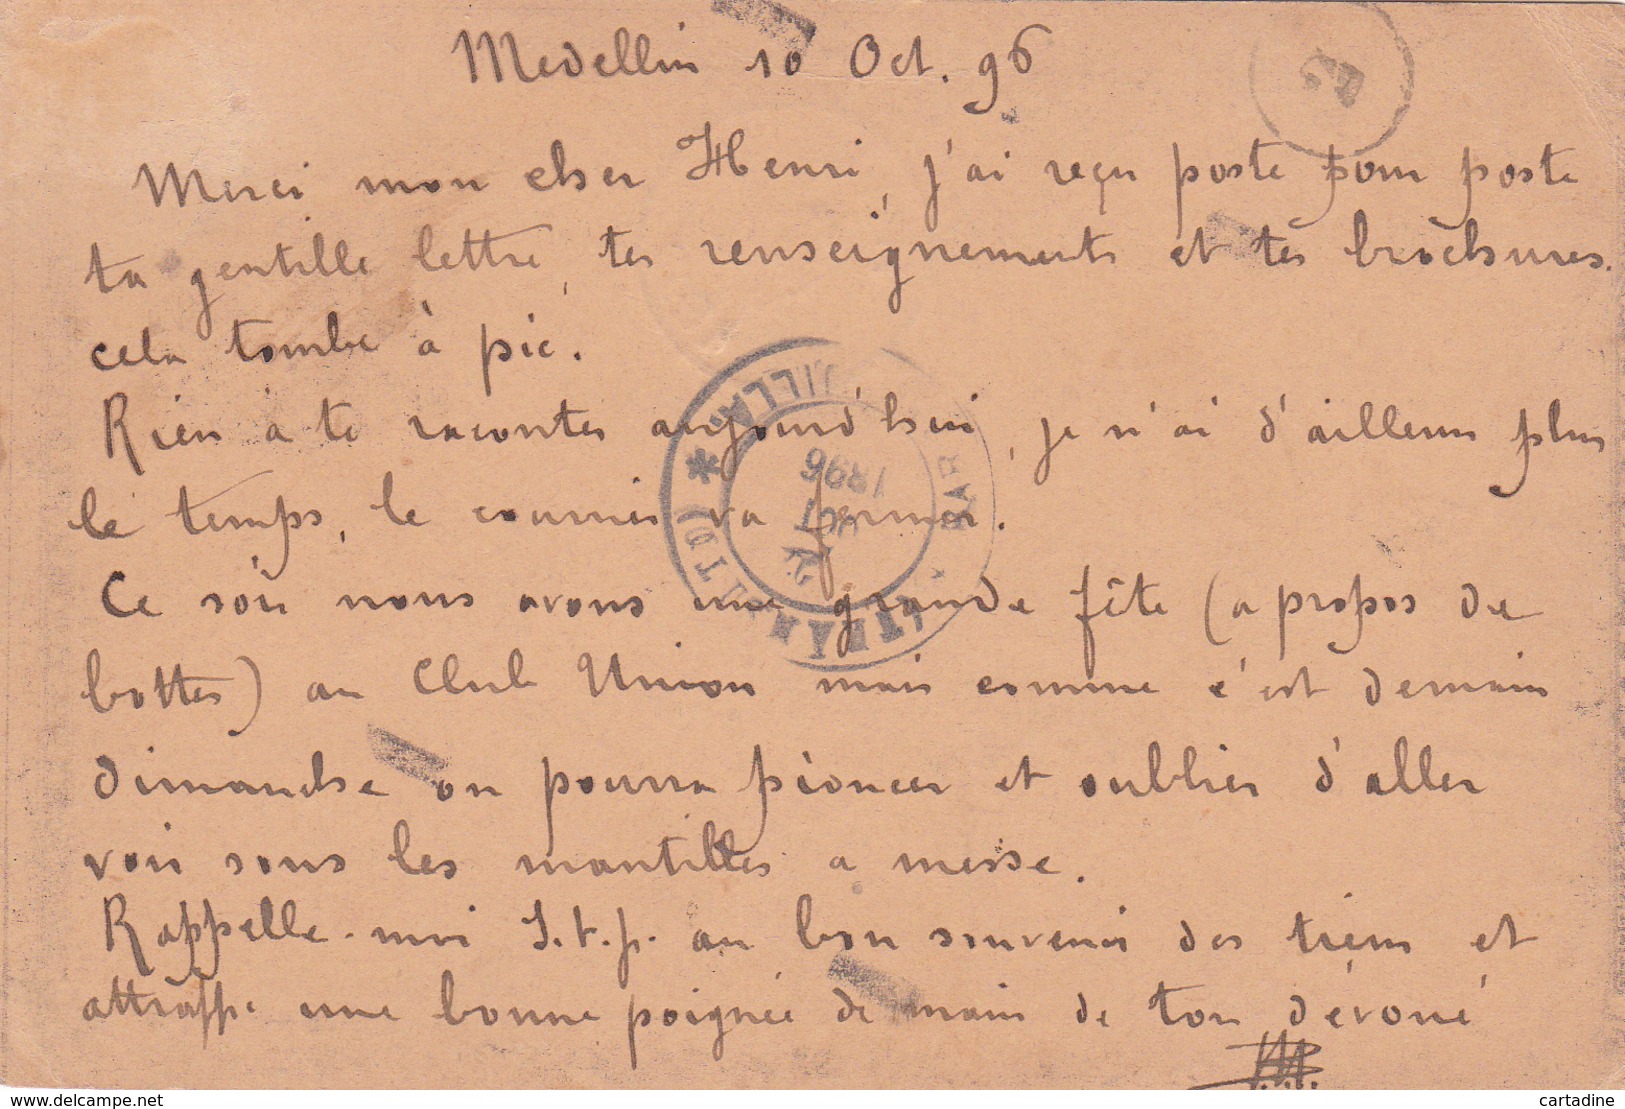 Medellin 10 Oct. 96
Merci mon cher Henri, j'ai reçu poste pour poste
ta gentille lettre, tes renseignements et tes brochures.
cela tombe à pic.
Rien à te raconter aujourd'hui, je n'ai d'ailleurs plus
le temps, le courrier va fermer.
Ce soir nous avons une grande fête (a propos de
bottes) au Club Union mais comme c'est demain
dimanche on pourra pioncer et oublier d'aller
voir sous les mantilles a messe.
Rappelle-moi S.t.p. au bon souvenir des tiens et
attrappe une bonne poignée de main de ton dévoué
TRANSITO
1896
OCT
www.delcampe.net
cartadine